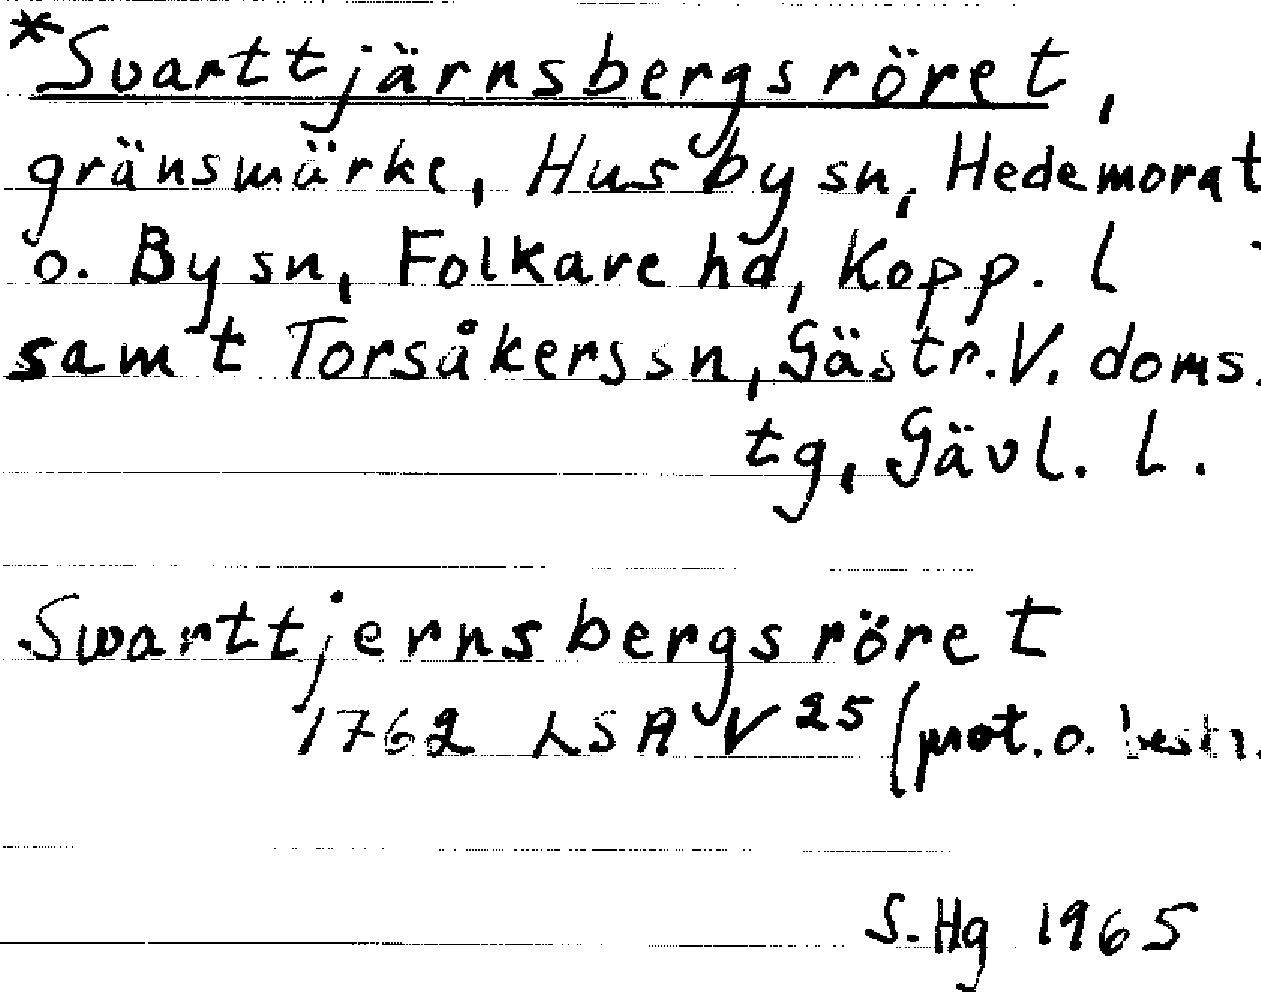 *Svarttjärnsbergsröret,
gränsmärke, Husby sn, Hedemora t
o. By sn, Folkare hd, Kopp. l
samt Torsåkers sn, Gästr. V. doms.
tg, Gävl. l.
Swarttjernsbergsröret
1762 LSA V 25 (prot. o. beskr.
S. Hg 1965